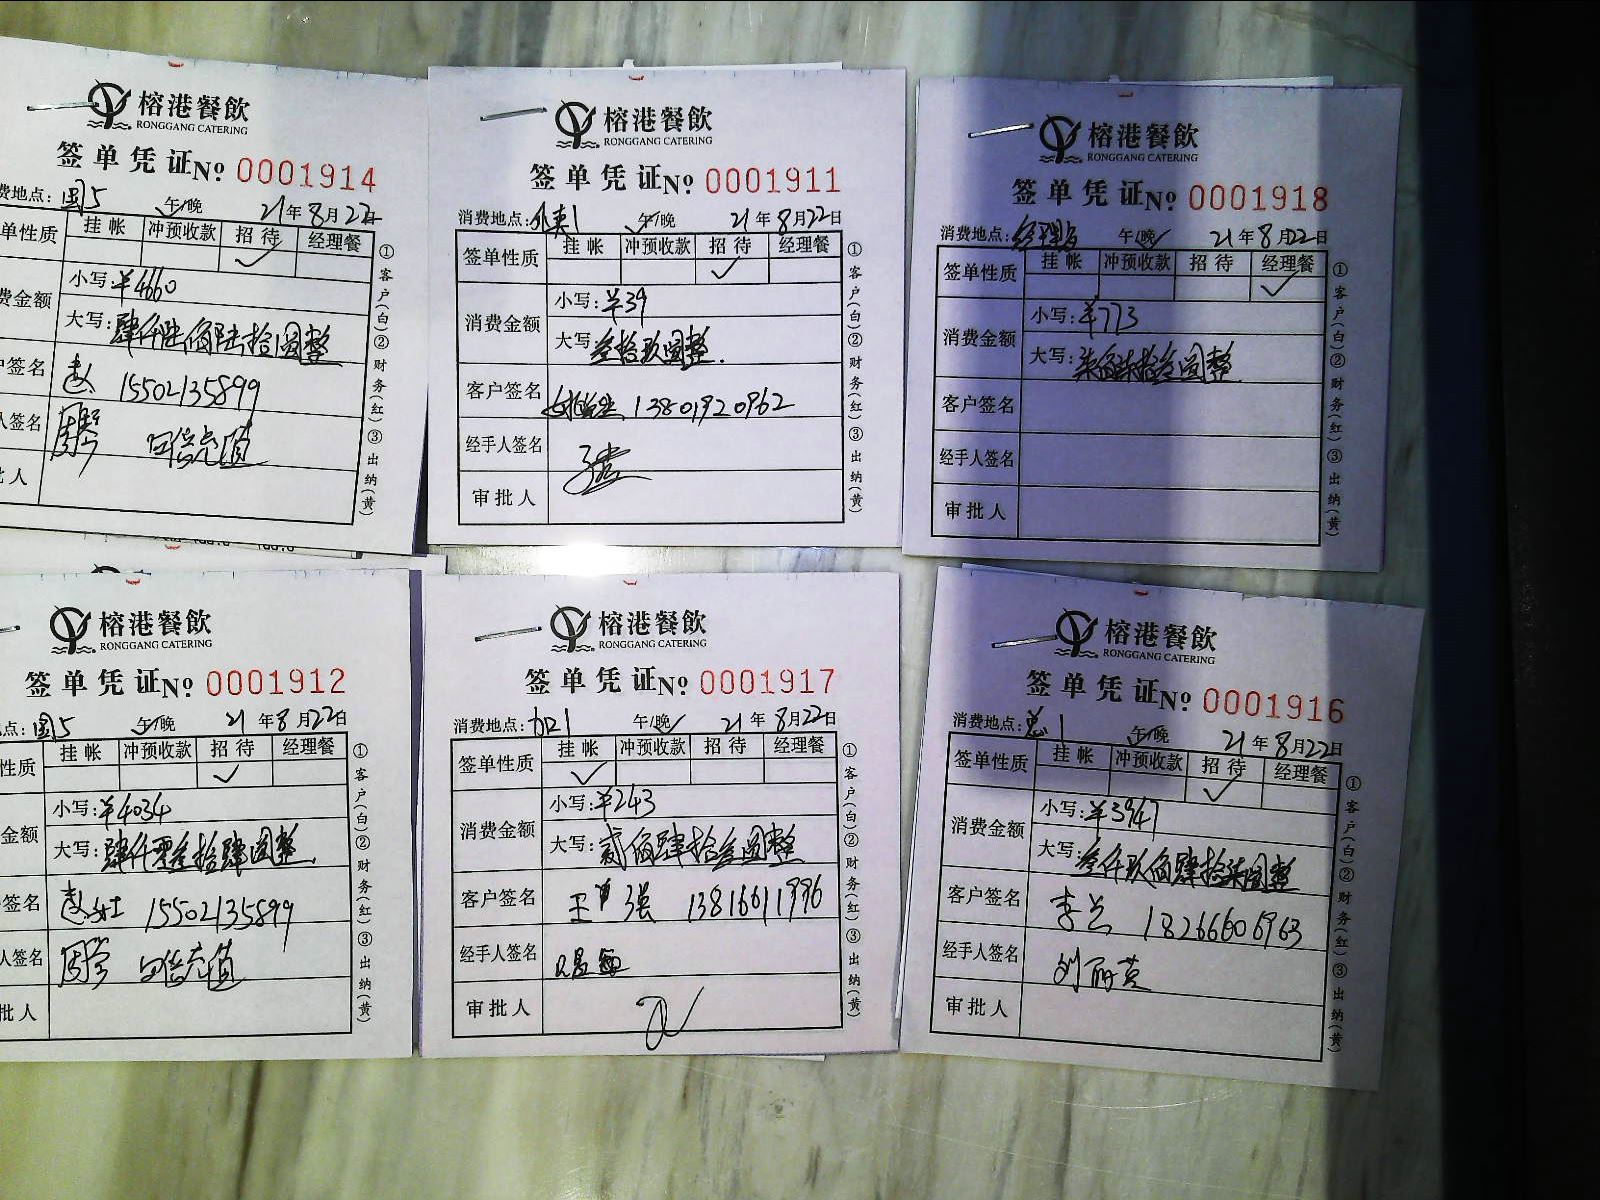 榕港餐飲
RONGGANG CATERING
签单凭证No 0001914
费地点: 国5 午/晚 21年8月22日
单性质 挂帐 冲预收款 招待 经理餐
费金额 小写:¥4660
大写: 肆仟陆佰陆拾圆整
户签名 赵 15502135899
人签名 四倍充值
人
①客户(白)②财务(红)③出纳(黄)
榕港餐飲
RONGGANG CATERING
签单凭证No 0001911
消费地点: 午/晚 21年8月22日
签单性质 挂帐 冲预收款 招待 经理餐
消费金额 小写:¥39
大写: 叁拾玖圆整.
客户签名 13801920962
经手人签名
审批人
①客户(白)②财务(红)③出纳(黄)
榕港餐飲
RONGGANG CATERING
签单凭证No 0001918
消费地点: 经理 午/晚 21年8月22日
签单性质 挂帐 冲预收款 招待 经理餐
消费金额 小写:¥773
大写: 柒佰柒拾叁圆整
客户签名
经手人签名
审批人
①客户(白)②财务(红)③出纳(黄)
榕港餐飲
RONGGANG CATERING
签单凭证No 0001912
点: 国5 午/晚 21年8月22日
性质 挂帐 冲预收款 招待 经理餐
金额 小写:¥4034
大写: 肆仟零叁拾肆圆整
签名 赵 15502135899
人签名 四倍充值
批人
①客户(白)②财务(红)③出纳(黄)
榕港餐飲
RONGGANG CATERING
签单凭证No 0001917
消费地点: 午/晚 21年8月22日
签单性质 挂帐 冲预收款 招待 经理餐
消费金额 小写:¥243
大写: 贰佰肆拾叁圆整
客户签名 王 强 13816611996
经手人签名
审批人
①客户(白)②财务(红)③出纳(黄)
榕港餐飲
RONGGANG CATERING
签单凭证No 0001916
消费地点: 总1 午/晚 21年8月22日
签单性质 挂帐 冲预收款 招待 经理餐
消费金额 小写:¥3947
大写: 叁仟玖佰肆拾柒圆整
客户签名 李兰 18266606963
经手人签名 刘丽英
审批人
①客户(白)②财务(红)③出纳(黄)